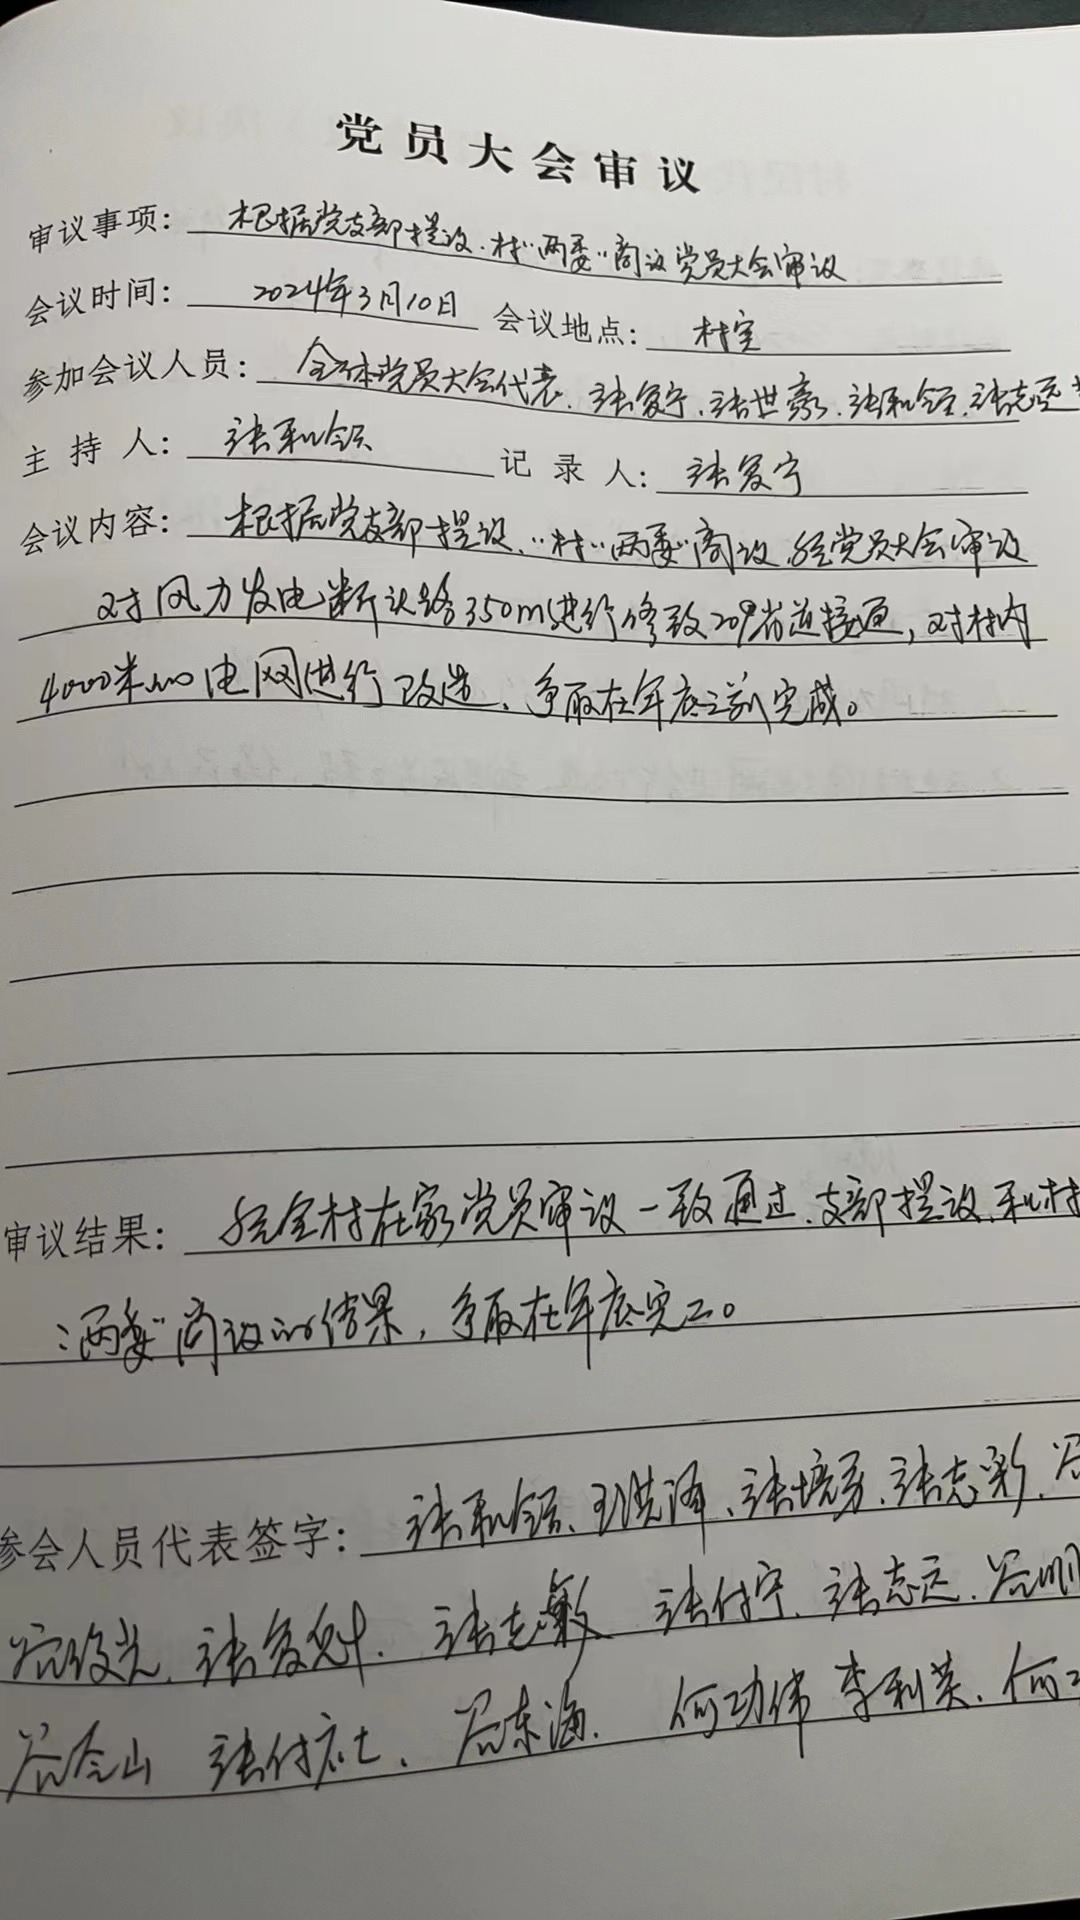 党员大会审议
审议事项：根据党支部提议.村"两委"商议党员大会审议
会议时间：2024年3月10日 会议地点：村室
参加会议人员：全体党员大会代表、张复宁、张世豪、张和领、张志远
主持人：张和领 记录人：张复宁
会议内容：根据党支部提议、"村"两委"商议、经党员大会审议
对风力发电断头路350m进行修致209省道接通，对村内
4000米的电网进行改造、争取在年底之前完成。
审议结果：经全村在家党员审议一致通过、支部提议、和村
"两委"商议的结果，争取在年底完工。
参会人员代表签字：张和领、王洪泽、张培芳、张志彩、
张复魁、张志敏 张付宁、张志远、
张付社、东海、何功伟 李利英、何